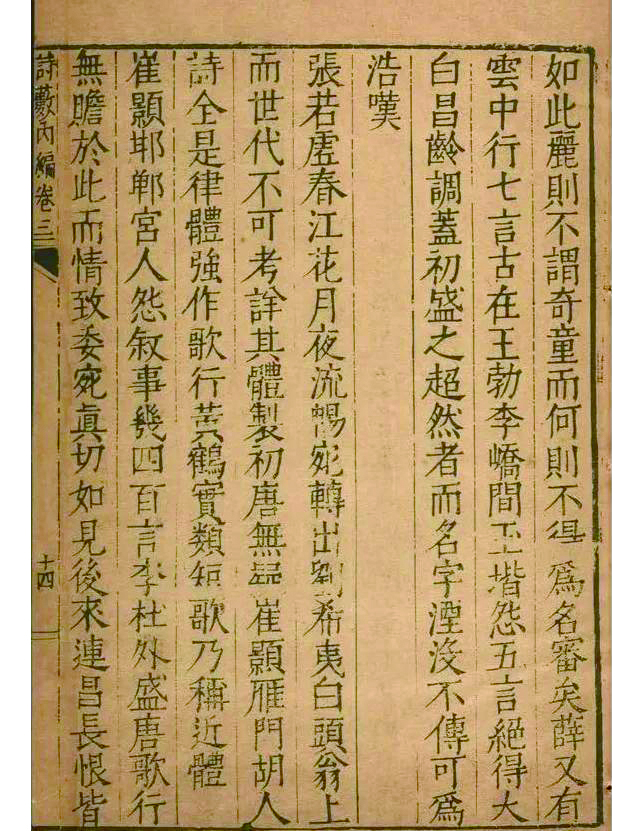 如此麗則不謂奇童而何則不得為名審矣薛又有
雲中行七言古在王勃李嶠間玉堦怨五言絕得大
白昌齡調蓋初盛之超然者而名字湮沒不傳可為
浩嘆
張若虛春江花月夜流暢宛轉出劉希夷白頭翁上
而世代不可考詳其體製初唐無疑崔顥雁門胡人
詩全是律體強作歌行黃鶴實類短歌乃稱近體
崔顥邯鄲宮人怨敘事幾四百言李杜外盛唐歌行
無贍於此而情致委宛真切如見後來連昌長恨皆
詩藪內編卷三
十四